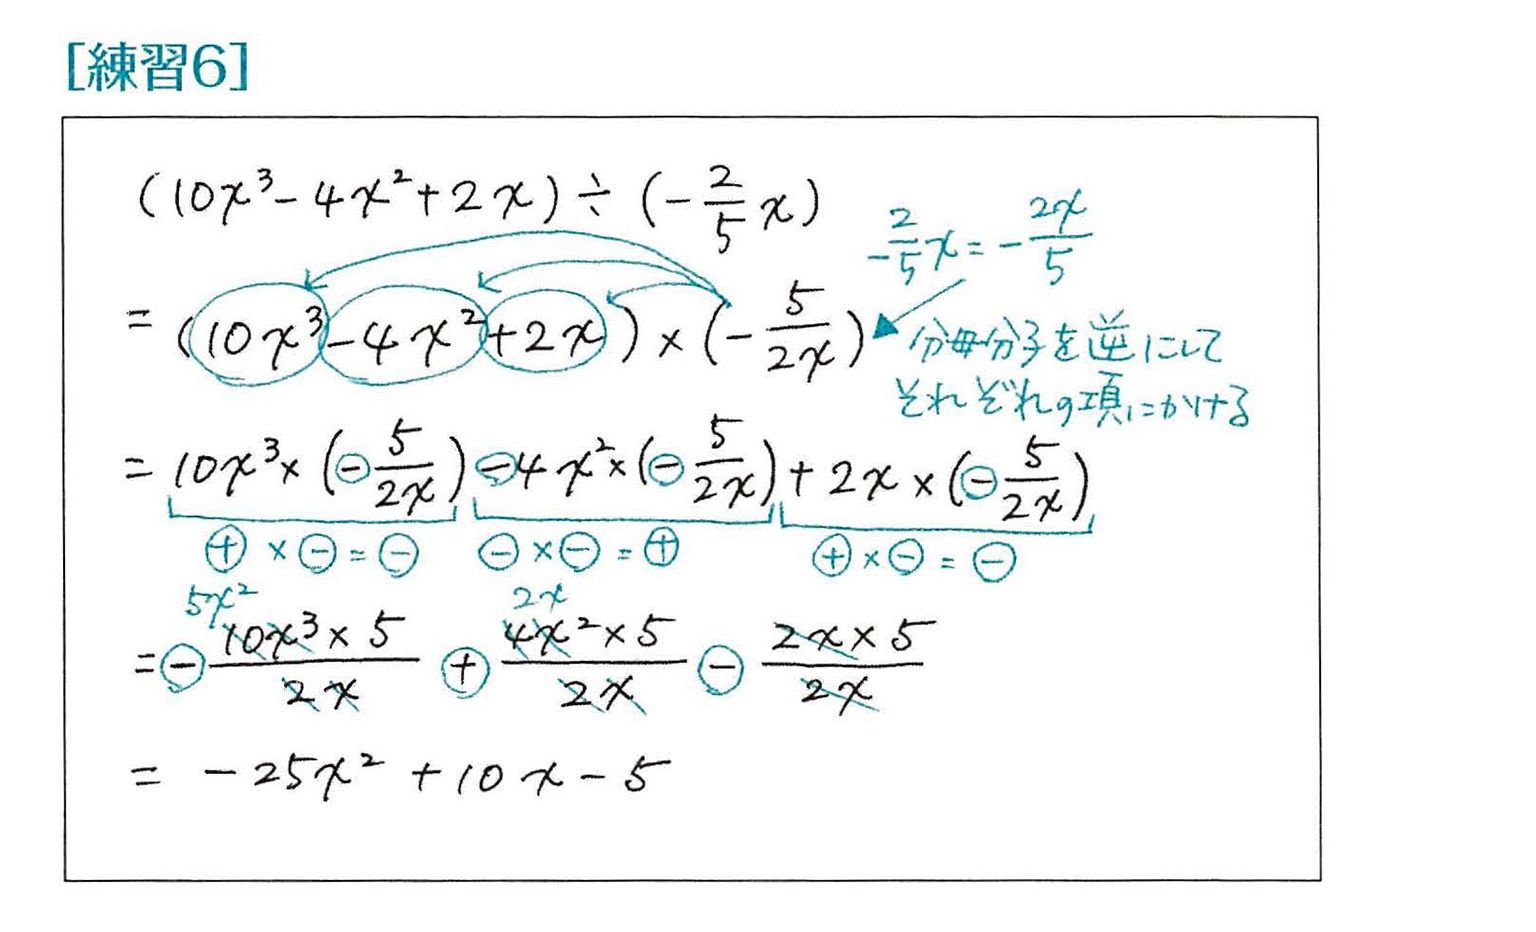 [練習6]
(10x³-4x²+2x)÷(-2/5 x)
-2/5 x=-2x/5
=(10x³-4x²+2x)×(-5/2x)
分母分子を逆にして
それぞれの項にかける
=10x³×(-5/2x)-4x²×(-5/2x)+2x×(-5/2x)
+×-=- -×-=+ +×-=-
5x² 2x
=-10x³×5/2x+4x²×5/2x-2x×5/2x
=-25x²+10x-5